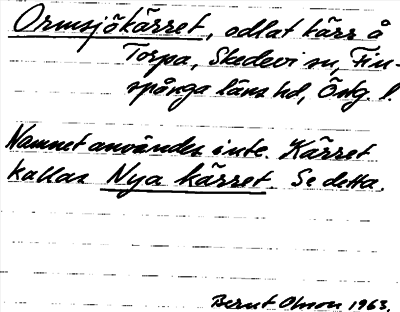 Ormsjökärret, odlat kärr å
Torpa, Skedevi sn, Fin-
spånga läns hd, Ög. l.
Namnet användes inte. Kärret
kallas Nya kärret. Se detta.
Bernt Olsson 1963.